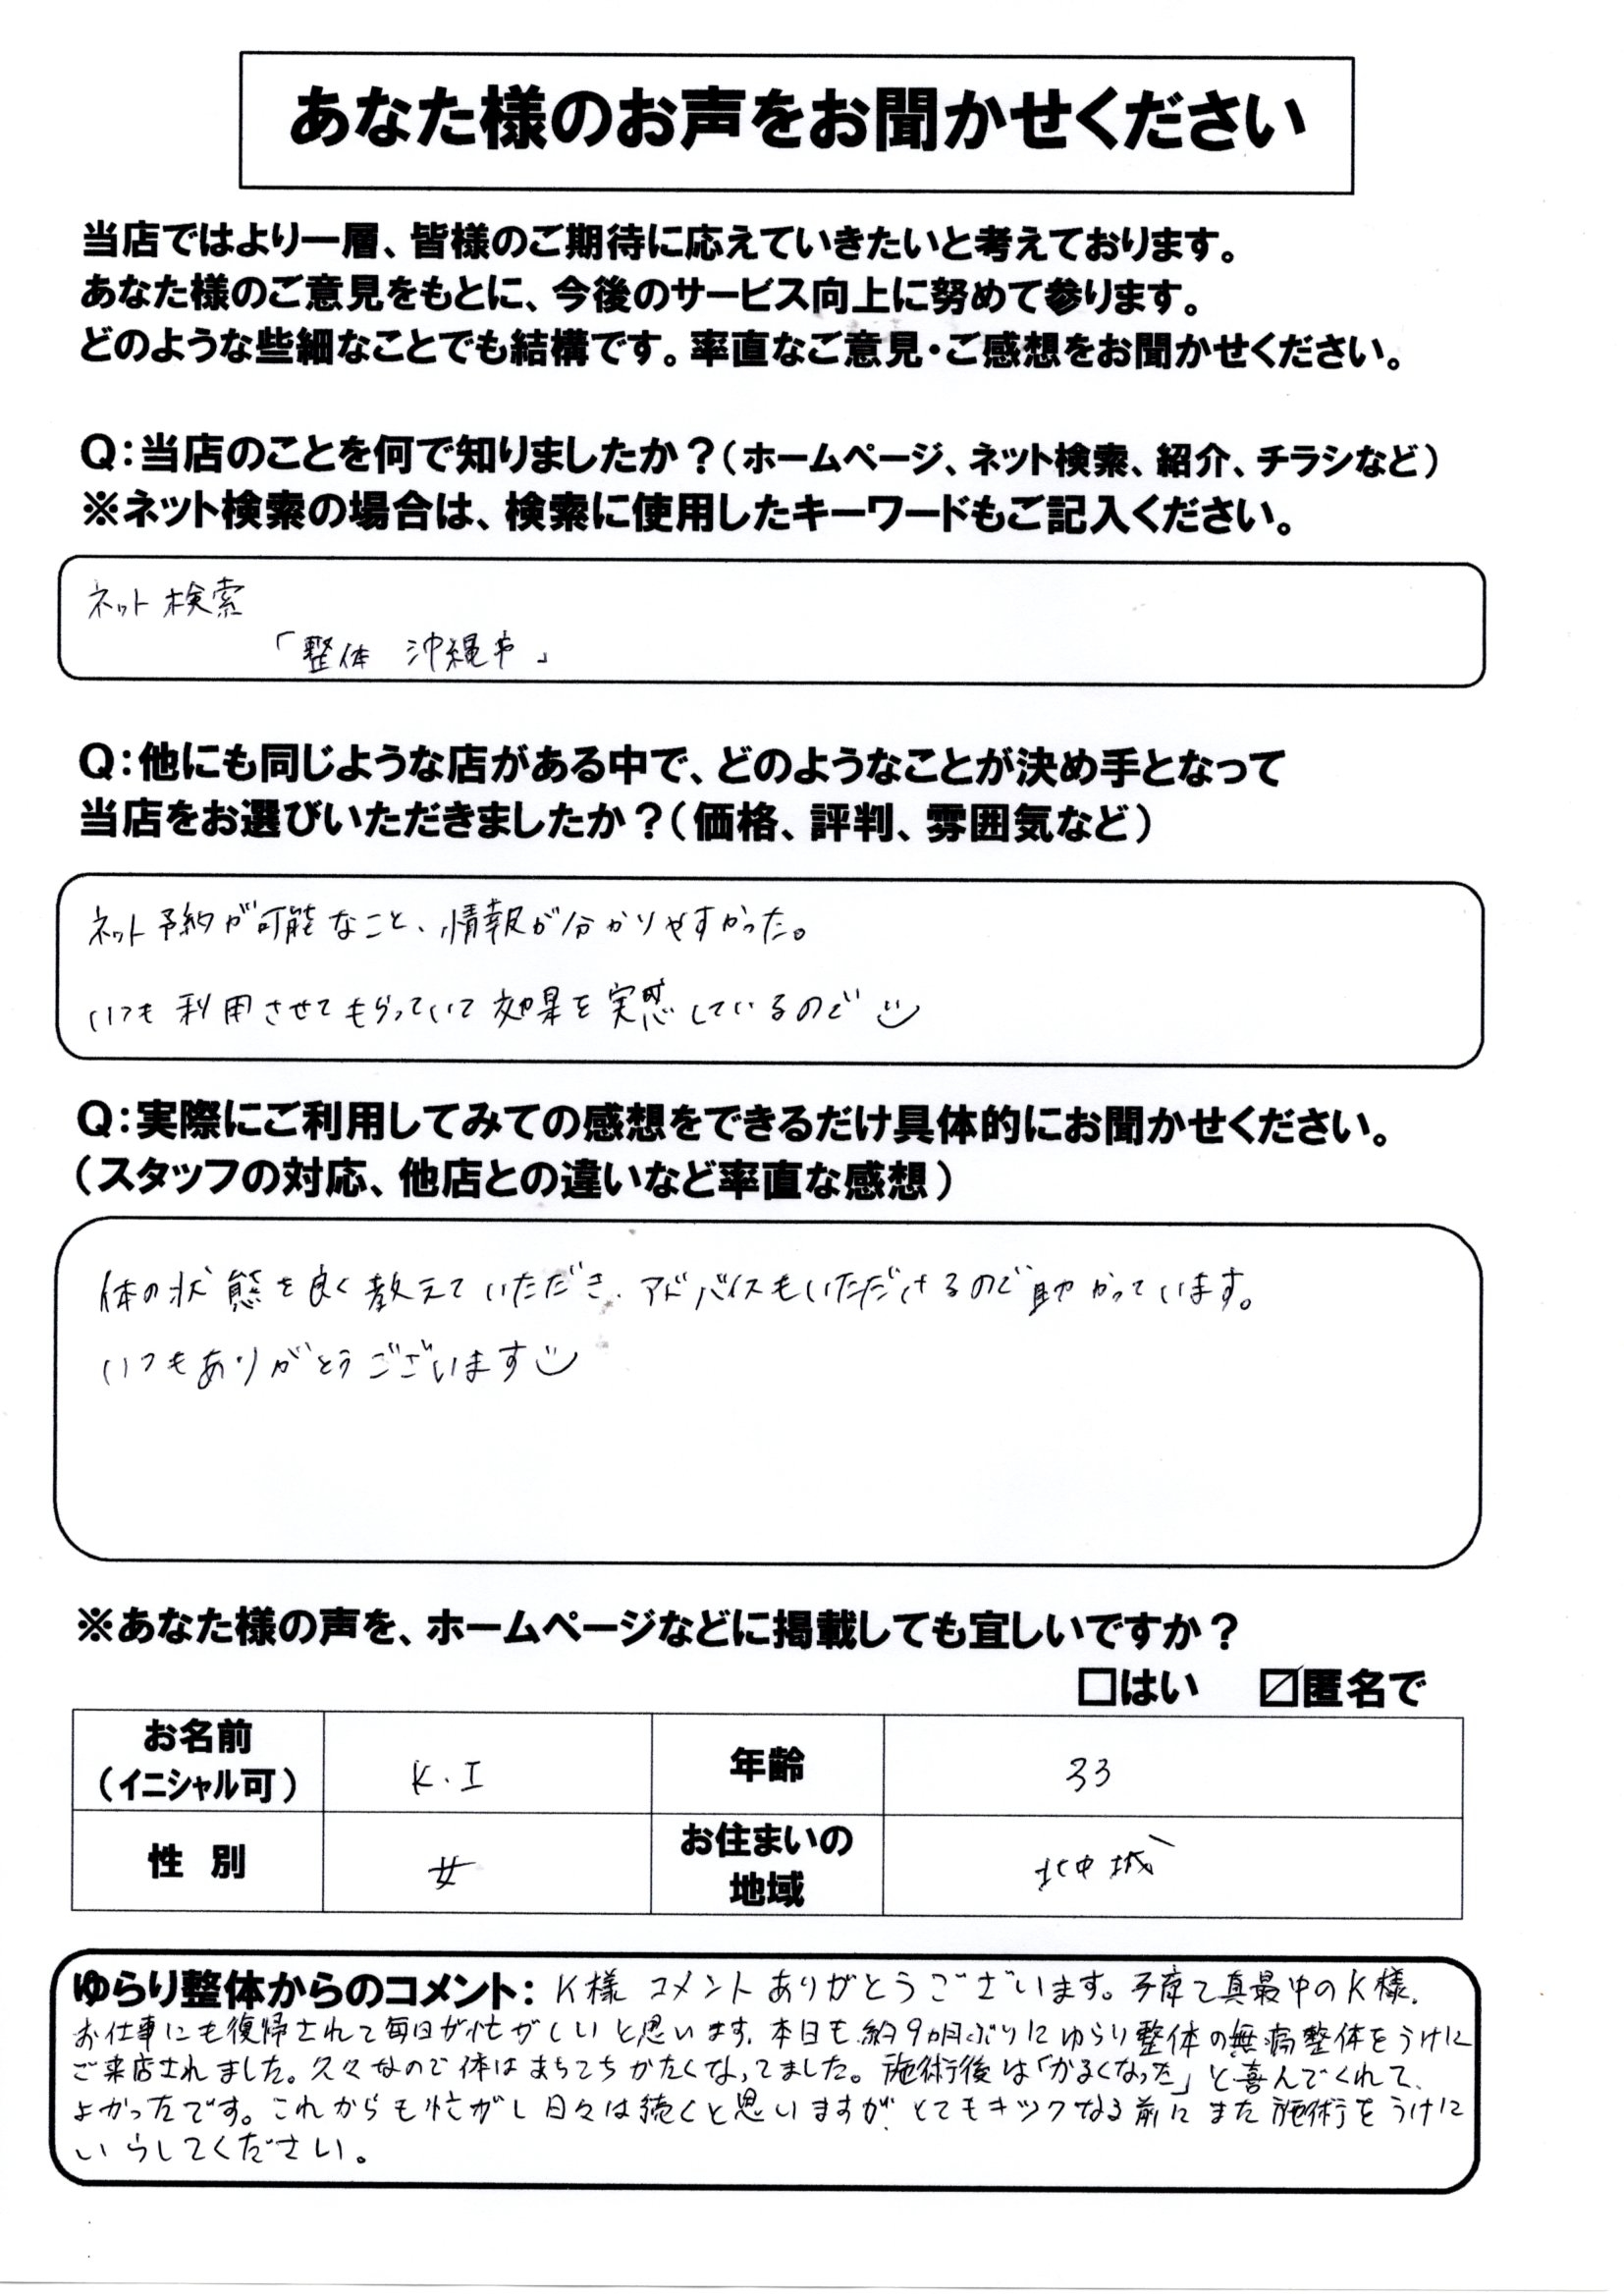 あなた様のお声をお聞かせください
当店ではより一層、皆様のご期待に応えていきたいと考えております。
あなた様のご意見をもとに、今後のサービス向上に努めて参ります。
どのような些細なことでも結構です。率直なご意見・ご感想をお聞かせください。
Q：当店のことを何で知りましたか？（ホームページ、ネット検索、紹介、チラシなど）
※ネット検索の場合は、検索に使用したキーワードもご記入ください。
ネット検索
「整体 沖縄市」
Q：他にも同じような店がある中で、どのようなことが決め手となって
当店をお選びいただきましたか？（価格、評判、雰囲気など）
ネット予約が可能なこと、情報が分かりやすかった。
いつも利用させてもらっていて効果を実感しているので
Q：実際にご利用してみての感想をできるだけ具体的にお聞かせください。
（スタッフの対応、他店との違いなど率直な感想）
体の状態を良く教えていただき、アドバイスもいただけるので助かっています。
いつもありがとうございます
※あなた様の声を、ホームページなどに掲載しても宜しいですか？
□はい ☑匿名で
お名前
（イニシャル可） K.I 年齢 33
性別 女 お住まいの
地域 北中城
ゆらり整体からのコメント： K様 コメントありがとうございます。子育て真最中のK様、
お仕事にも復帰されて毎日が忙がしいと思います。本日も約9カ月ぶりにゆらり整体の無痛整体をうけに
ご来店されました。久々なので体はまちてちかたくなってました。施術後は「かるくなった」と喜んでくれて、
よかったです。これからも忙がし日々は続くと思いますが、とてもキツクなる前にまた施術をうけに
いらしてください。